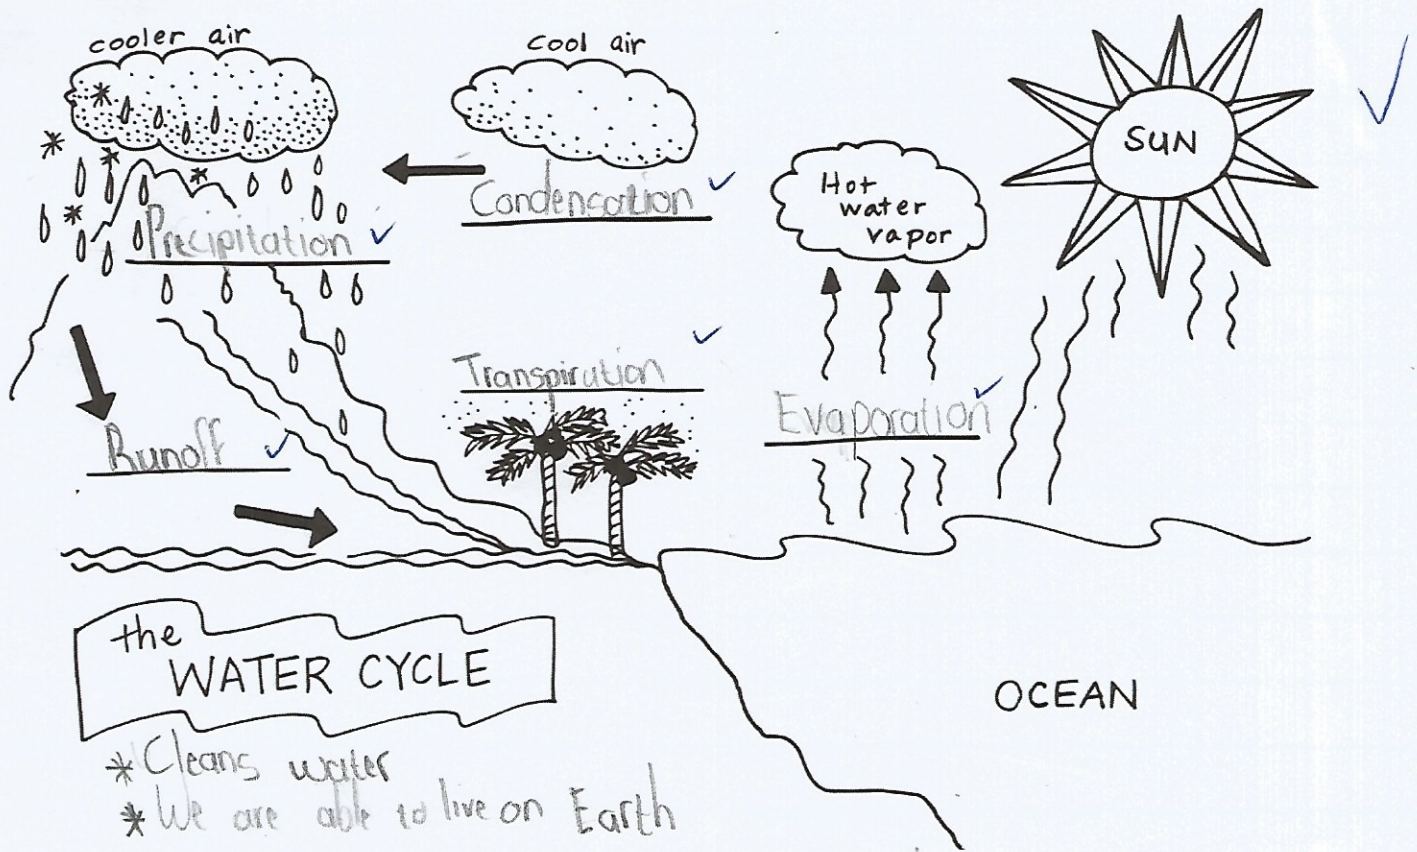 cooler air
cool air
SUN
Hot
water
vapor
Condensation
Precipitation
Transpiration
Evaporation
Runoff
the
WATER CYCLE
OCEAN
* Cleans water
* We are able to live on Earth